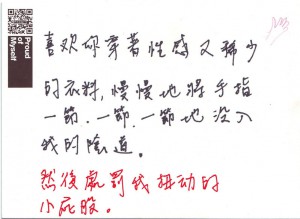 Proud
of
Myself
喜欢你穿著性感又稀少
的衣料,慢慢地將手指
一節.一節.一節地没入
我的陰道。
然後處罰我扭动的
小屁股。